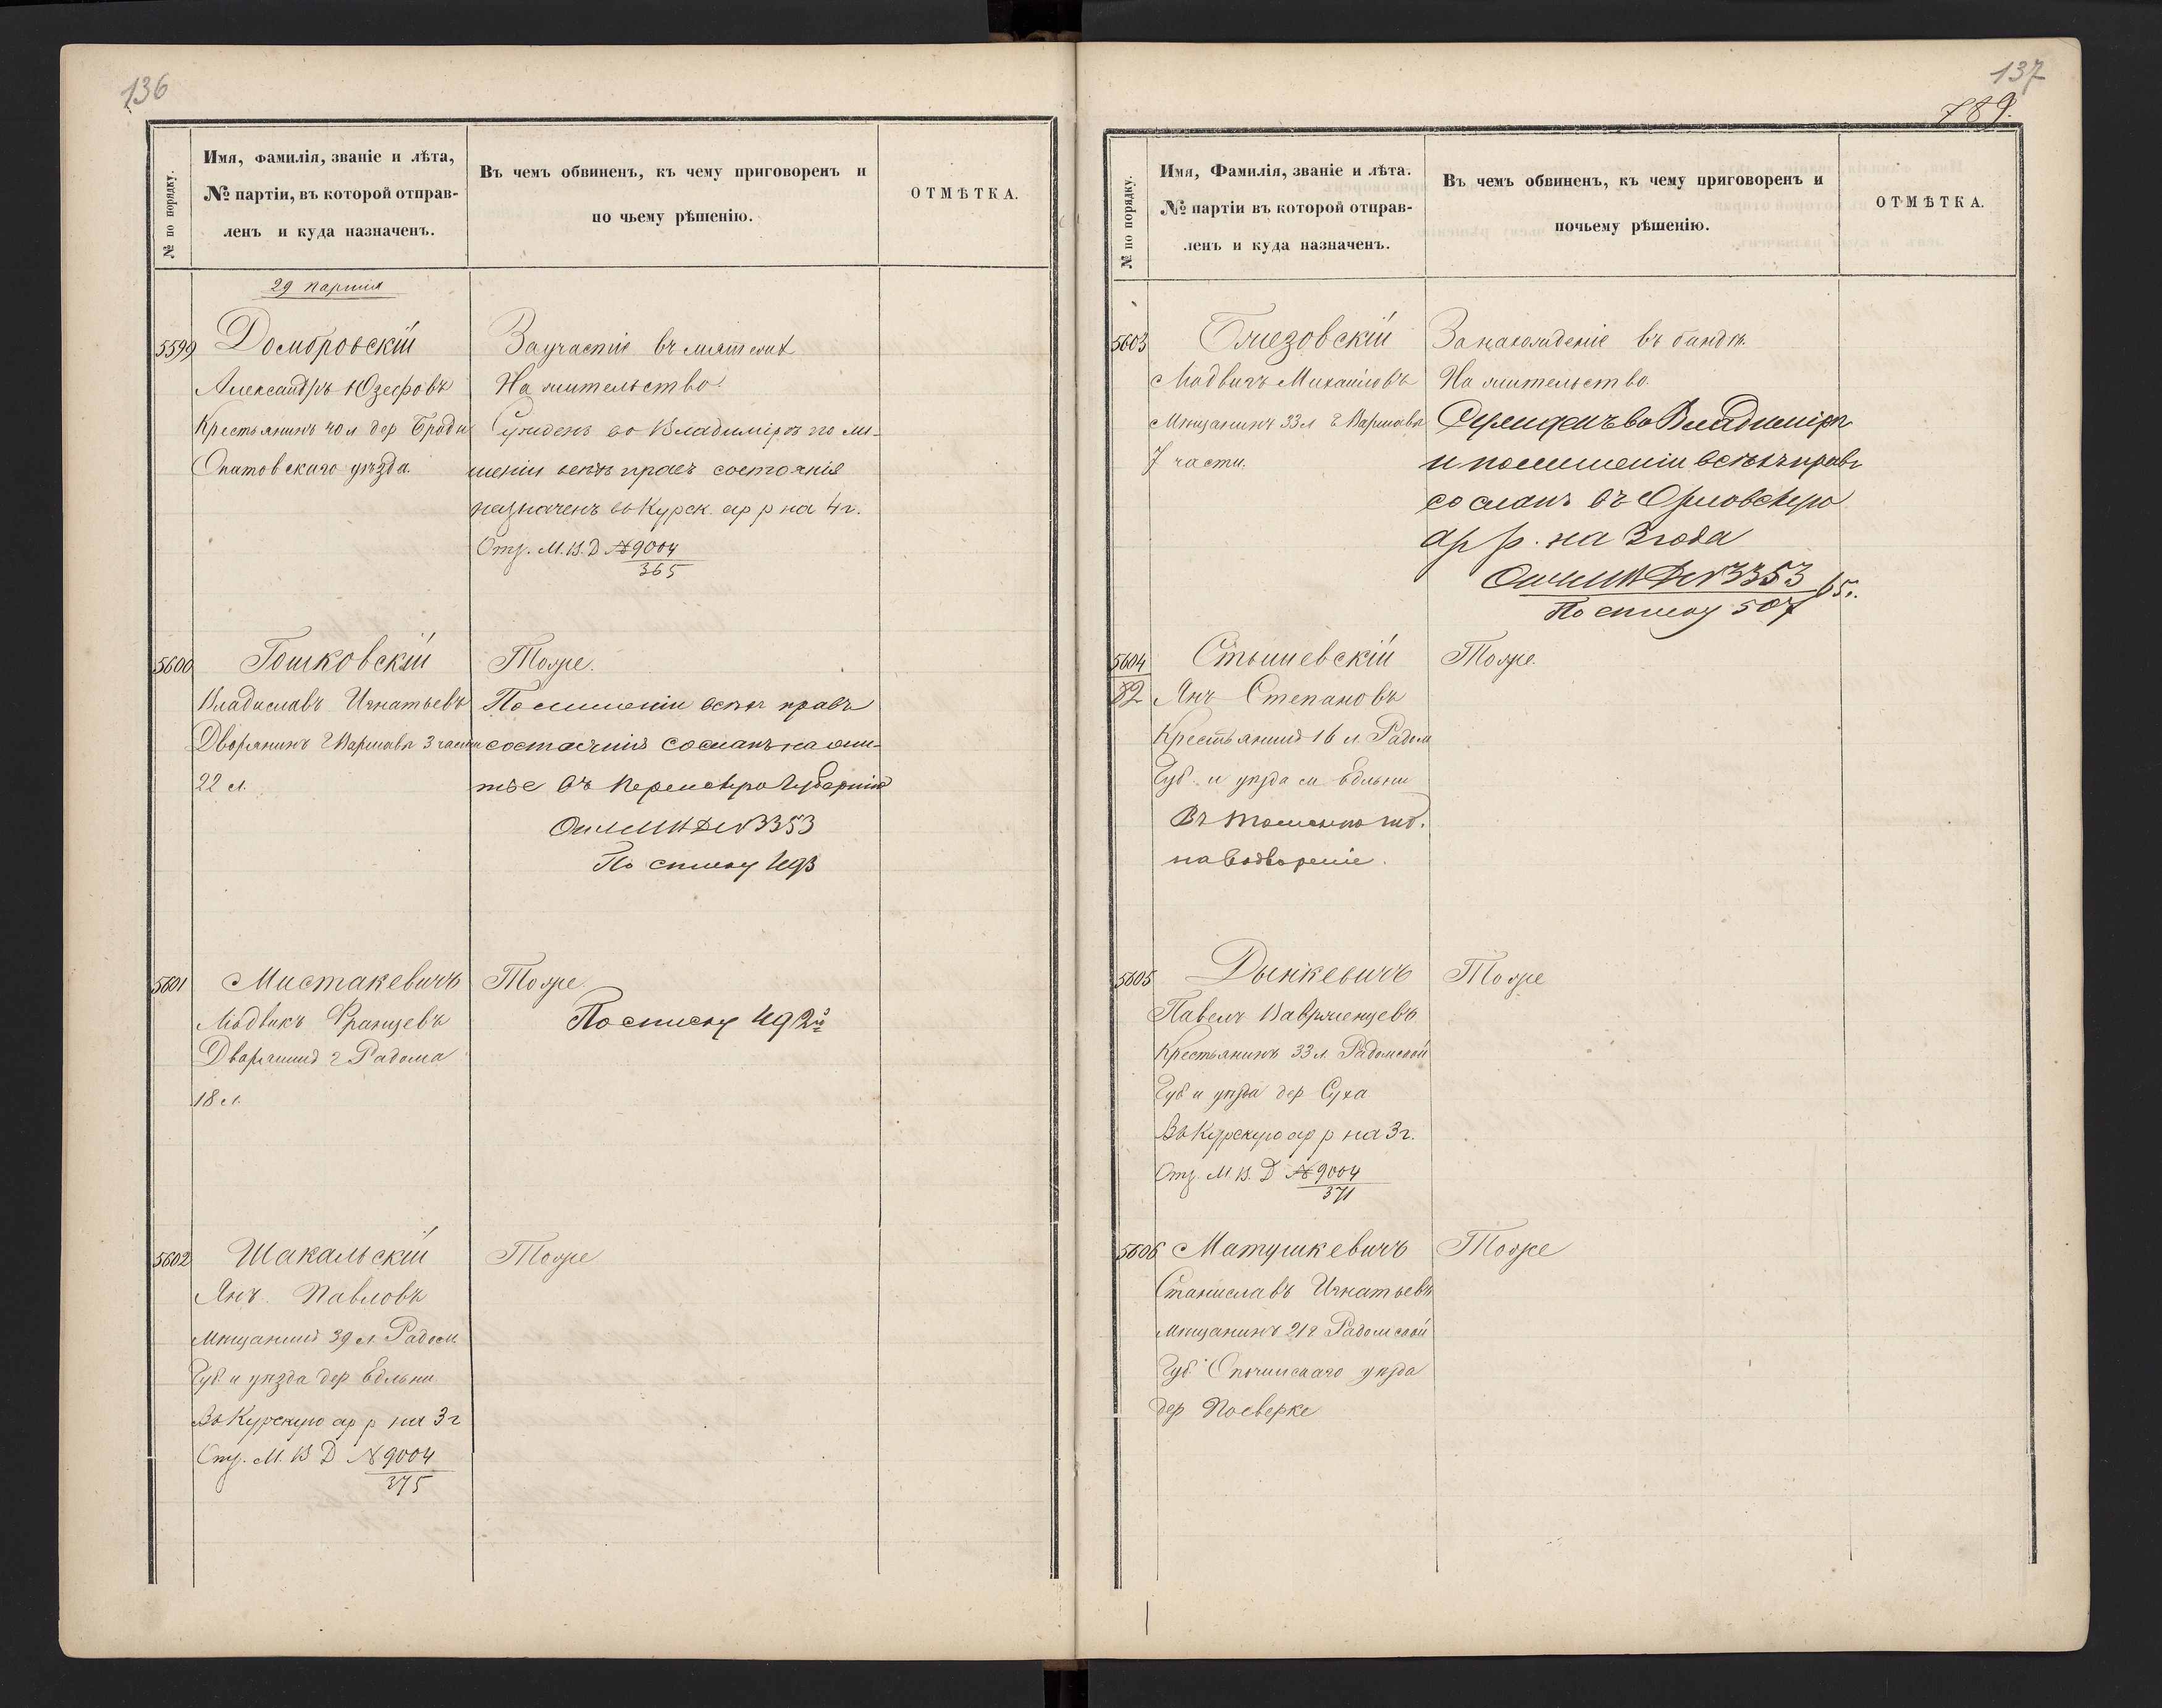 136
№ по порядку.
Имя, фамилія, званіе и лѣта,
№ партіи, въ которой отправ-
ленъ и куда назначенъ.
Въ чемъ обвиненъ, къ чему приговоренъ и
по чьему рѣшенію.
ОТМѢТКА.
29 партия
5599
Домбровскій
Александръ Юзефовъ
Крестьянинъ 40 л дер Броды
Опатовскаго уѣзда.
За участіе въ мятежѣ
На жительство.
Сужденъ во Владимірѣ по ли-
шеніи всѣхъ правъ состоянія
назначенъ въ Курск. ар р на 4 г.
Отз. М. В. Д № 9004
365
5600
Гошковскій
Владиславъ Игнатьевъ
Дворянинъ г Варшавы 3 части
22 л.
Тоже.
По лишеніи всѣхъ правъ
состоянія сосланъ на жи-
тье въ Пермскую Губернію
3353
По списку 493
5601
Мистакевичъ
Людвикъ Францевъ
Дворянинъ г Радома
18 л.
Тоже.
По списку 492
5602
Шакальскій
Янъ Павловъ
Мѣщанинъ 39 л. Радом.
Губ. и уѣзда дер Едльни
Въ Курскую ар р на 3 г
Отз. М. В Д № 9004
375
Тоже
137
789.
№ по порядку.
Имя, Фамилія, званіе и лѣта.
№ партіи въ которой отправ-
ленъ и куда назначенъ.
Въ чемъ обвиненъ, къ чему приговоренъ и
почьему рѣшенію.
ОТМѢТКА.
5603
Глезовскій
Людвигъ Михайловъ
Мѣщанинъ 33 л г Варшавы
7 части.
За нахожденіе въ бандѣ.
На жительство.
Сужденъ во Владимірѣ
и по лишеніи всѣхъ правъ
сосланъ въ Орловскую
ар р. на 3 года
3353 65.
По списку 507
5604
82
Стышевскій
Янъ Степановъ
Крестьянинъ 16 л. Радом
Губ. и уѣзда м Едльни
Въ Томскую губ.
на водвореніе.
Тоже.
5605
Дынкевичъ
Павелъ Ваврженцевъ
Крестьянинъ 33 л. Радомской
Губ и уѣзда дер Суха
Въ Курскую ар р на 3 г.
Отз. М. В. Д № 9004
371
Тоже
5606
Матушкевичъ
Станиславъ Игнатьевъ
Мѣщанинъ 21 г Радомской
Губ. Опочинскаго уѣзда
дер Посверке
Тоже